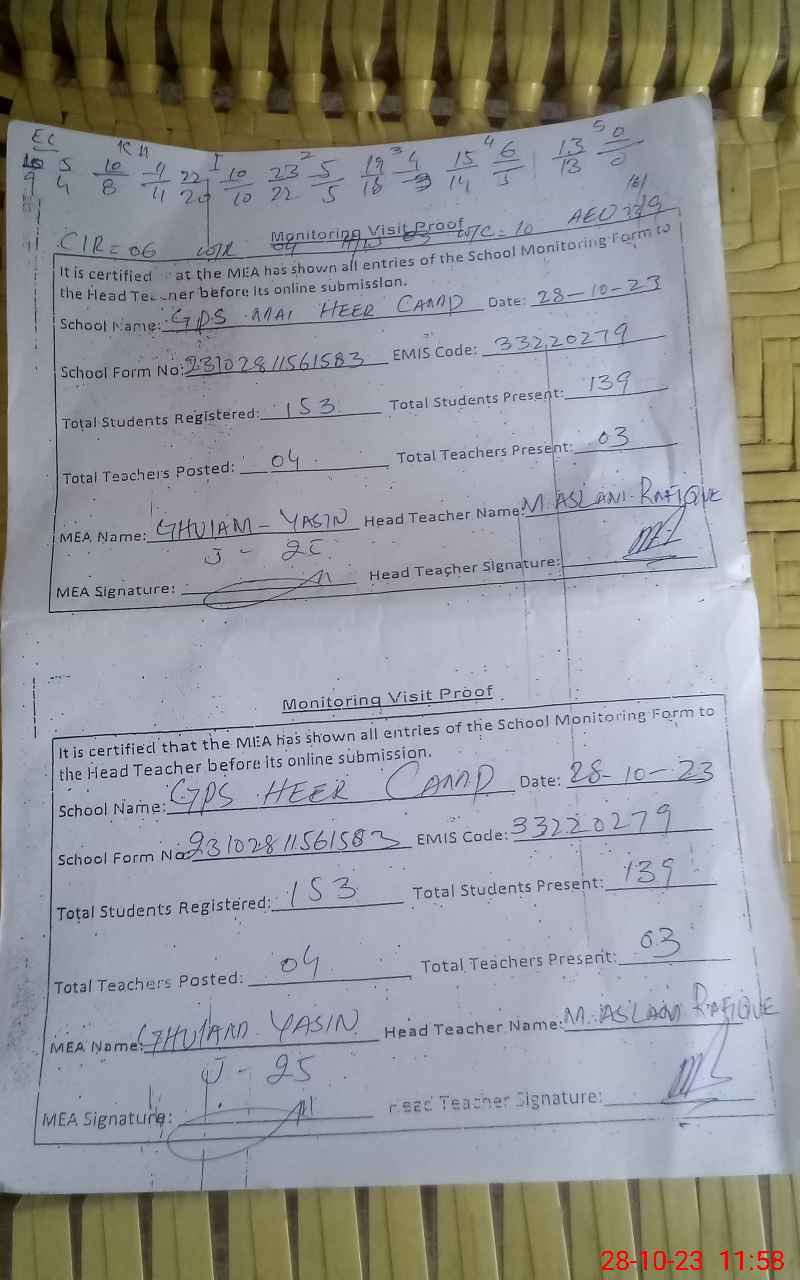 EC K H I 2 3 4 5
5 10 4 22 10 23 5 19 4 15 6 13 0
9 4 8 4 20 10 22 5 18 3 14 5 13 0
CIR = 06 W/R 04 H/W 03 W/C = 10 AEO
Monitoring Visit Proof
It is certified at the MEA has shown all entries of the School Monitoring Form to
the Head Teacher before its online submission.
School Name: GPS MAI HEER CAMP Date: 28-10-23
School Form No: 23102811561583 EMIS Code: 33220279
Total Students Registered: 153 Total Students Present: 139
Total Teachers Posted: 04 Total Teachers Present: 03
MEA Name: GHULAM-YASIN Head Teacher Name: M. ASLAM RAFIQUE
J - 25
MEA Signature: Head Teacher Signature:
Monitoring Visit Proof
It is certified that the MEA has shown all entries of the School Monitoring Form to
the Head Teacher before its online submission.
School Name: GPS HEER CAMP Date: 28-10-23
School Form No: 23102811561583 EMIS Code: 33220279
Total Students Registered: 153 Total Students Present: 139
Total Teachers Posted: 04 Total Teachers Present: 03
MEA Name: GHULAM YASIN Head Teacher Name: M. ASLAM RAFIQUE
J - 25
MEA Signature: Head Teacher Signature:
28-10-23 11:58